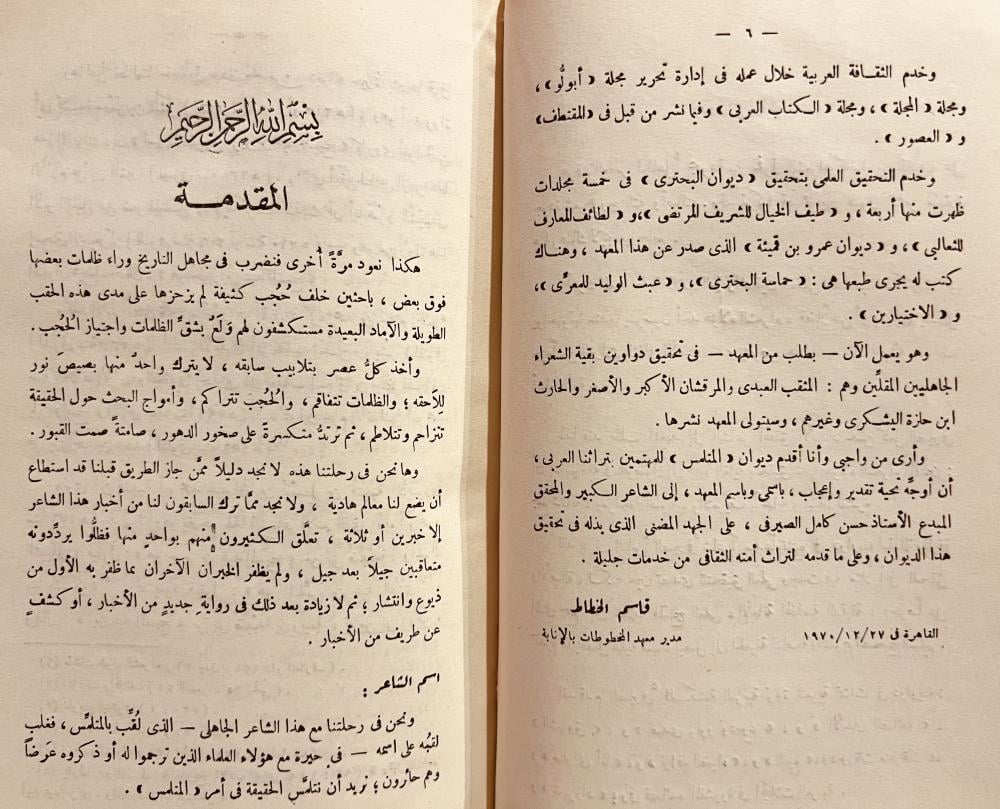 — ٦ —
وخدم الثقافة العربية خلال عمله فى إدارة تحرير مجلة « أبولُّو » ،
ومجلة « المجلة » ، ومجلة « الكتاب العربى » وفيما نشر من قبل فى « المقتطف »
و « العصور » .
وخدم التحقيق العلمى بتحقيق « ديوان البحترى » فى خمسة مجلدات
ظهرت منها أربعة ، و « طيف الخيال للشريف المرتضى » ، و « لطائف المعارف
للثعالبى » ، و « ديوان عمرو بن قميئة » الذى صدر عن هذا المعهد ، وهناك
كتب له يجرى طبعها هى : « حماسة البحترى » ، و « عبث الوليد للمعرِّى » ،
و « الاختيارين » .
وهو يعمل الآن — بطلب من المعهد — فى تحقيق دواوين بقية الشعراء
الجاهليين المقلِّين وهم : المثقب العبدى والمرقشان الأكبر والأصغر والحارث
ابن حلزة اليشكرى وغيرهم ، وسيتولى المعهد نشرها .
وأرى من واجبى وأنا أقدم ديوان « المتلمس » للمهتمين بتراثنا العربى ،
أن أوجِّه تحية تقدير وإعجاب ، باسمى وباسم المعهد ، إلى الشاعر الكبير والمحقق
المبدع الأستاذ حسن كامل الصيرفى ، على الجهد المضنى الذى بذله فى تحقيق
هذا الديوان ، وعلى ما قدمه لتراث أمته الثقافى من خدمات جليلة .
قاسم الخطاط
القاهرة فى ١٩٧٠/١٢/٢٧ مدير معهد المخطوطات بالإنابة
بسم الله الرحمن الرحيم
المقدمة
هكذا نعود مرَّةً أُخرى فنضرب فى مجاهل التاريخ وراء ظلمات بعضها
فوق بعض ، باحثين خلف حُجُب كثيفة لم يزحزها على مدى هذه الحقب
الطويلة والآماد البعيدة مستكشفون لهم وَلَعٌ بشقِّ الظلمات واجتياز الحُجُب .
وأخذ كلُّ عصر بتلابيب سابقه ، لا يترك واحدٌ منها بصيصَ نور
لِلَاحقه ؛ والظلمات تتفاقم ، والحُجُب تتراكم ، وأمواج البحث حول الحقيقة
تتزاحم وتتلاطم ، ثم ترتدُّ منكسرةً على صخور الدهور ، صامتةً صمت القبور .
وها نحن فى رحلتنا هذه لا نجد دليلاً ممَّن جاز الطريق قبلنا قد استطاع
أن يضع لنا معالم هادية ، ولا نجد ممَّا ترك السابقون لنا من أخبار هذا الشاعر
إلا خبرين أو ثلاثة ، تعلَّق الكثيرون منهم بواحدٍ منها فظلُّوا يردِّدونه
متعاقبين جيلاً بعد جيل ، ولم يظفر الخبران الآخران بما ظفر به الأول من
ذيوع وانتشار ؛ ثم لا زيادة بعد ذلك فى رواية جديدٍ من الأخبار ، أو كشفٍ
عن طريف من الأخبار .
اسم الشاعر :
ونحن فى رحلتنا مع هذا الشاعر الجاهلى — الذى لُقِّب بالمتلمِّس ، فغلب
لقبُه على اسمه — فى حيرة مع هؤلاء العلماء الذين ترجموا له أو ذكروه عَرَضاً
وهم حائرون ؛ نريد أن نتلمَّس الحقيقة فى أمر « المتلمس » .